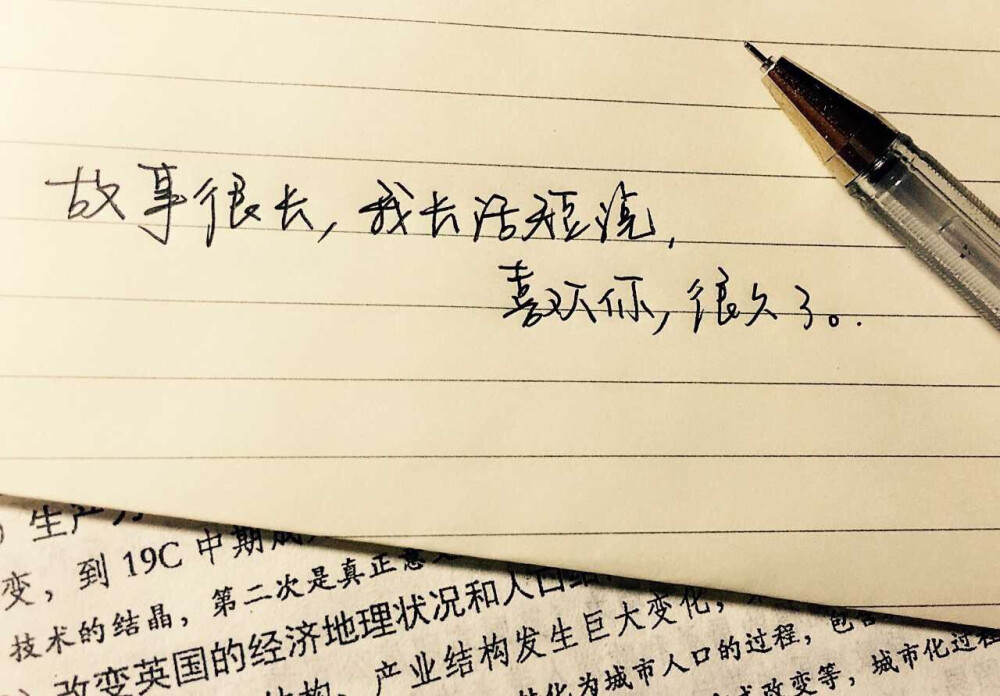 故事很长,我长话短说,
喜欢你,很久了。
生产力
变，到19C中期成
技术的结晶，第二次是真正意义
改变英国的经济地理状况和人口结
结构、产业结构发生巨大变化，
转化为城市人口的过程，包含
改变等，城市化过程